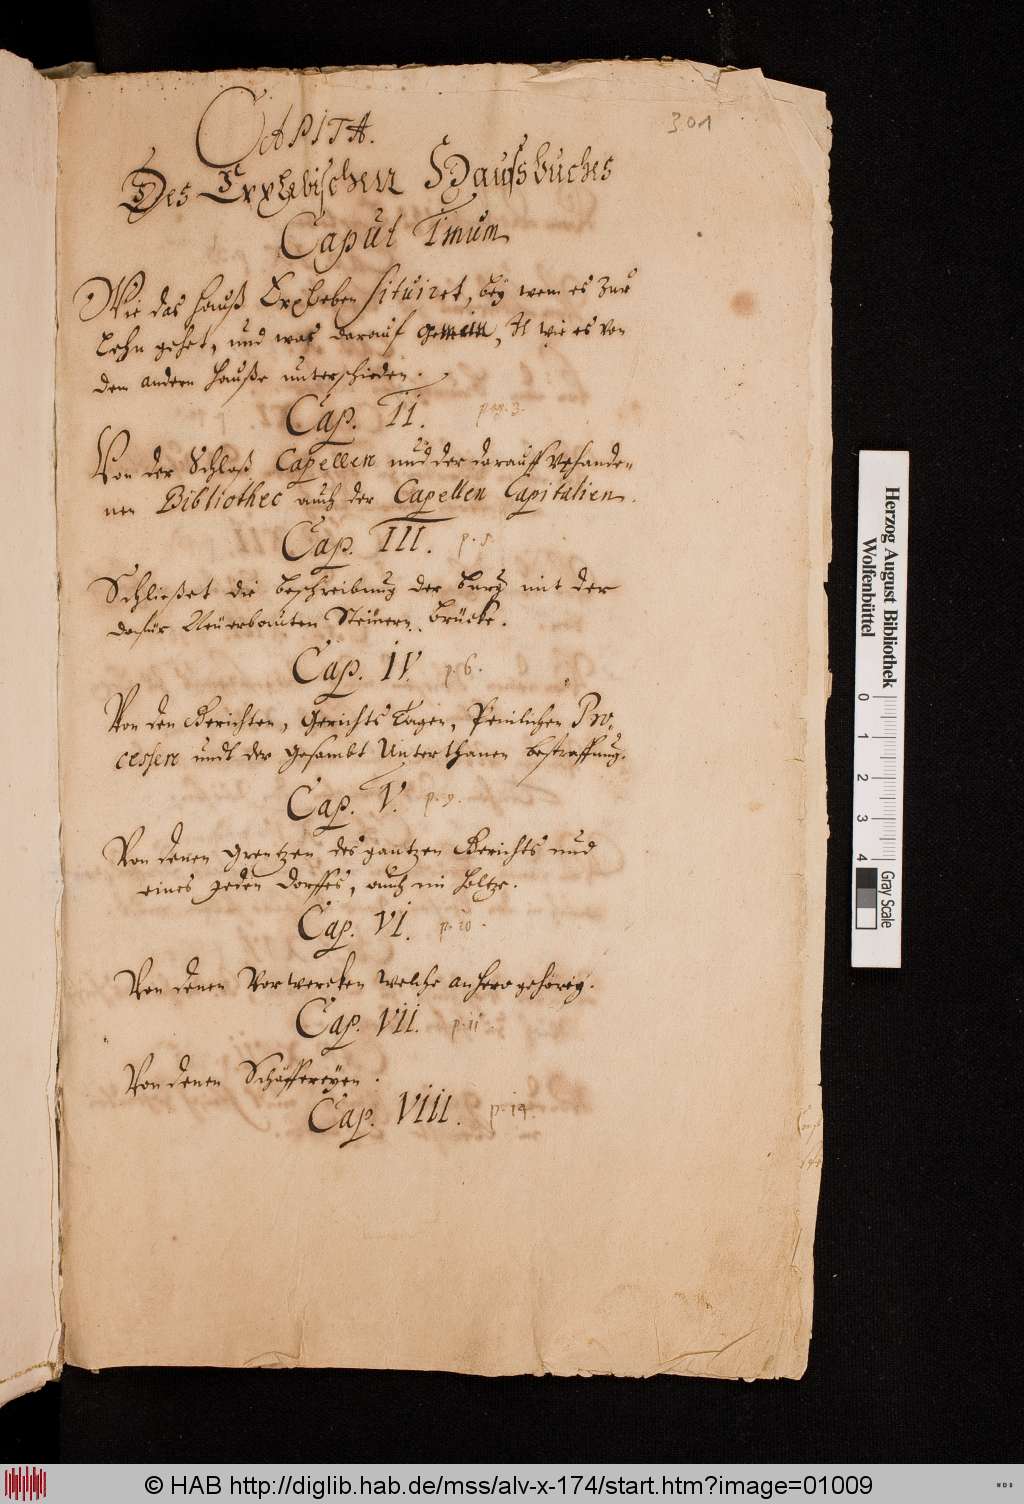 CAPITA.
301
Des Erxlebischen Haussbuches
Caput Imum
Wie das Hauß Erxleben situiret, bey wem es zur
Lehn gehet, und was darauf gemein, It wie es von
dem andern Hauße unterschieden.
Cap. II. pag. 3.
Von der Schloß Capellen und der darauff vorhande-
nen Bibliothec auch der Capellen Capitalien.
Cap. III. p. 5.
Schließet die beschreibung der burg mit der
dafür Neuerbauten Steinern brücke.
Cap. IV. p. 6.
Von den Gerichten, Gerichts Tagen, Peinlichen Pro-
cessen undt der gesambt Unterthanen bestraffung.
Cap. V. p. 9.
Von denen Grentzen des gantzen Gerichts und
eines jeden dorffes, auch im holtze.
Cap. VI. p. 10.
Von denen Vorwercken welche anhero gehörig.
Cap. VII. p. 11
Von denen Schäffereyen.
Cap. VIII. p. 14.
Herzog August Bibliothek
Wolfenbüttel
0 1 2 3 4
Gray Scale
© HAB http://diglib.hab.de/mss/alv-x-174/start.htm?image=01009